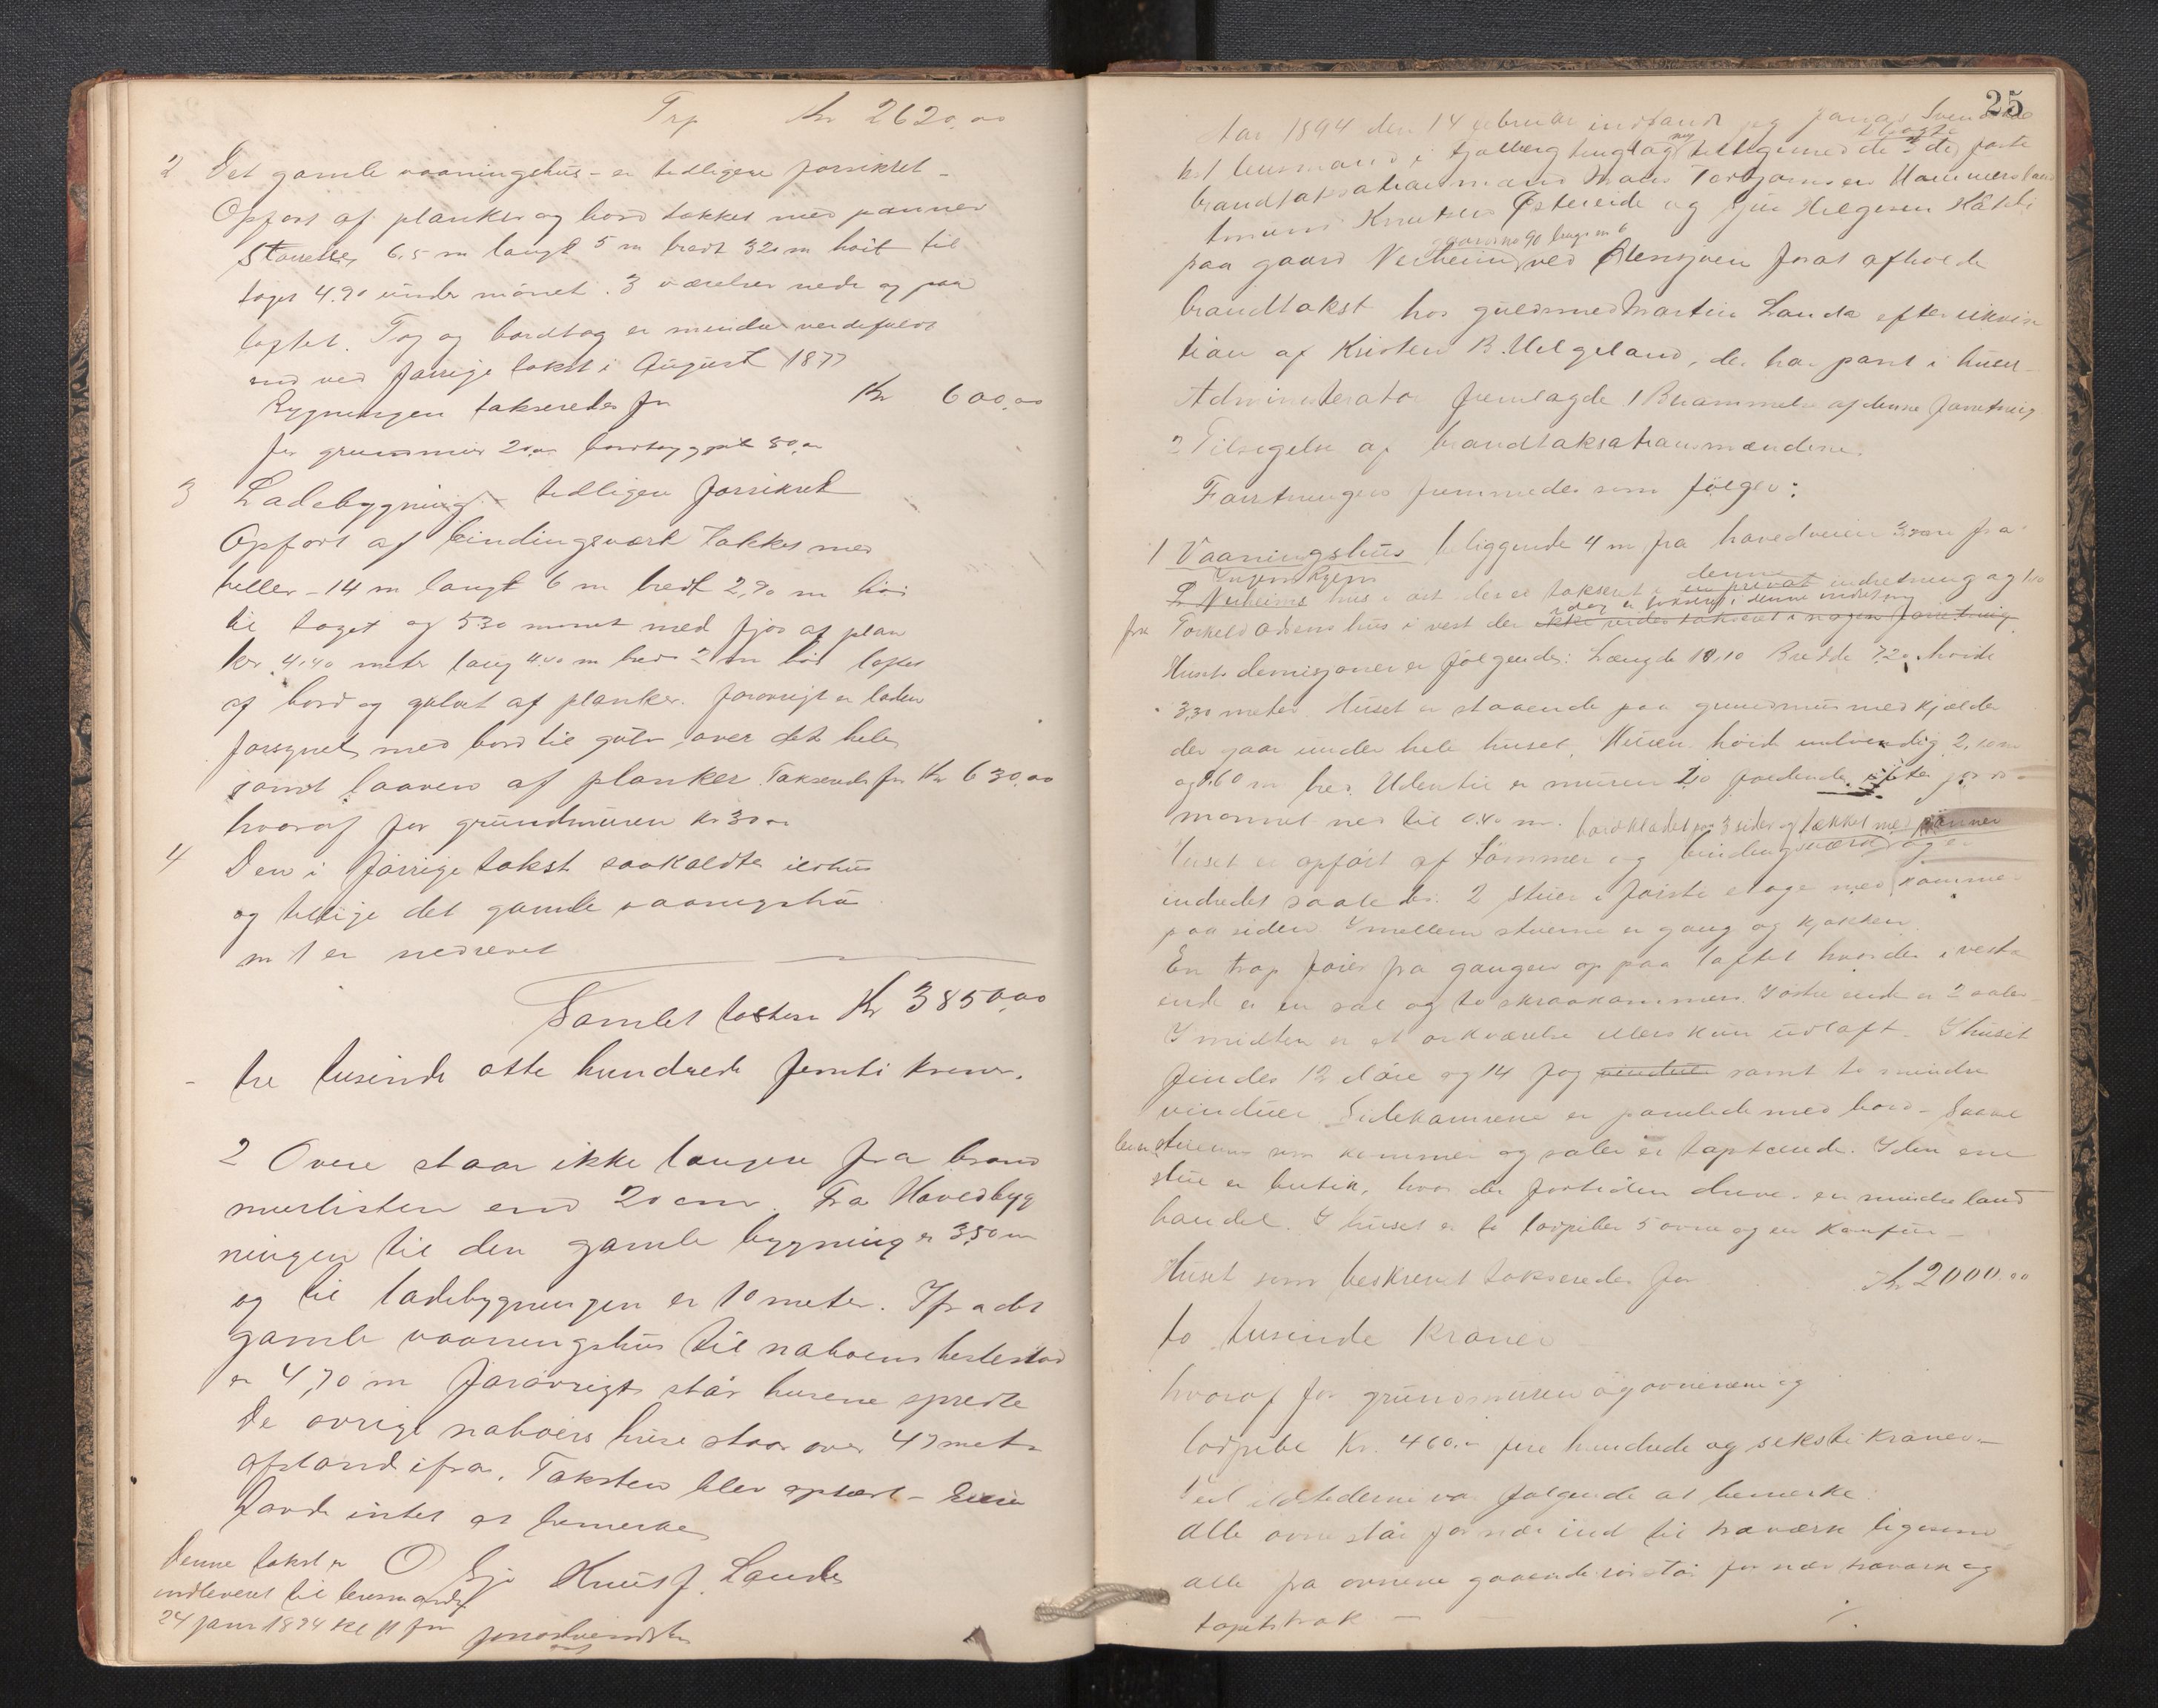 Trp Kr 2620,00
2 Det gamle vaaningshus - er tidligere forsikret -
Opført af planker og bord takket med panner
Størrelse 6,5 m langt 5 m bredt 320 m høit til
taget 4.90 under mønet. 3 værelser nede og paa
loftet. Tag og bordtag er mindre verdefuldt
end ved forrige takst i August 1877
Bygningen takseredes for Kr 600,00
for grunmur 20,00
3 Ladebygning - tidligere forsikret
Opført af bindingsværk takket med
heller - 14 m langt 6 m bredt 2,90 m høi
til taget og 530 mønet med fjøs af plan
ker 4,40 meter lang 4.40 m bred 2 m høi loftet
af bord og gulvet af planker. forøvrigt er laden
forsynet med bord til gulv over det hele
samt laaven af planker. Takseredes for Kr 630,00
hvoraf for grundmuren Kr 30 00
4 Den i forrige takst saakaldte ildhus
og tillige det gamle vaaningshus
m 1 er nedrevet
Samlet taksten Kr 3850,00
- tre tusinde otte hundrede femti kroner.
2 Ovne staar ikke længere fra brand
murlisten end 20 cm. Fra Hovedbyg
ningen til den gamle bygning er 3,50 m
og til ladebygningen er 10 meter. Ifra det
gamle vaaningshus til naboens hestestad
er 4,70 m forøvrigt står husene spredte
De øvrige naboers huse staar over 47 meter
afstand ifra. Taksten blev oplæst - Eieren
havde intet at bemerke
Denne takst er Knut J. Lande
indleveret til lensmanden
24 janr 1894 kl 11 fm Jonas Svendsen
25
Aar 1894 den 14 februar indfandt jeg Jonas Svendsen
kst lensmand i Fjelberg tinglag tilligemed de
brandtaksationsmænd Hans Torbjørnsen Hammersland
Knutsen Østereide og Helgesen
gaardsno 90 brugsno 6
paa gaard Vetheim ved Ølensjøen for at afholde
brandtakst hos guldsmed Martin Lande efter rekvisi
tion af Kristen B. Helgeland, der har pant i huset -
Administrator fremlagde 1 Berammelse af denne forretning
2 Tilsigelse af brandtaksationsmændene.
Forretningen fremmedes som følger:
1 Vaaningshus beliggende 4 m fra hovedveien 3 m fra
denne
Vetheims hus i øst der er takseret i en privat indretning og
idag er takseret i denne indretning
fra Torkeld Odsens hus i vest der ikke vides takseret i nogen forretning.
Husets demisjoner er følgende: Længde 10,10 Bredde 7,20 høide
3,30 meter. Huset er staaende paa grundmur med kjælder
der gaar under hele huset. Muren høide indvendig 2,10 m
og 0,60 m bred. Udentil er muren
monnet ned til 0.40 m. bordklædt paa 3 sider og tækket med panner
Huset er opført af tømmer og bindingsværk og er
indredet saaledes. 2 stuer i første etage med kammer
paa siden. Imellem stuerne er gang og kjøkken.
En trap fører fra gangen op paa loftet hvor der i vestre
ende er en sal og to skraakammers. I østre ende er 2 saler
I midten er et arkværelse ellers kun udloft. I huset
findes 12 døre og 14 fag vinduer samt to mindre
vinduer. Sidekamrene er panelede med bord -
stuerne som kammer og saler er tapetserede. I den ene
stue er butik, hvor der fortiden drives en mindre land
handel. I huset er to lodpiber 5 ovne og en komfur -
Huset som beskrevet takseredes for Kr 2000.00
to tusinde kroner
hvoraf for grundmuren og ovnene og
lodpibe Kr. 460.- fire hundrede og seksti kroner. -
Ved ildstederne var følgende at bemerke:
Alle ovne står for nær ind til træværk ligesom
alle fra ovnene gaaende rør står for nær træværk og
tapetstrak -
./.